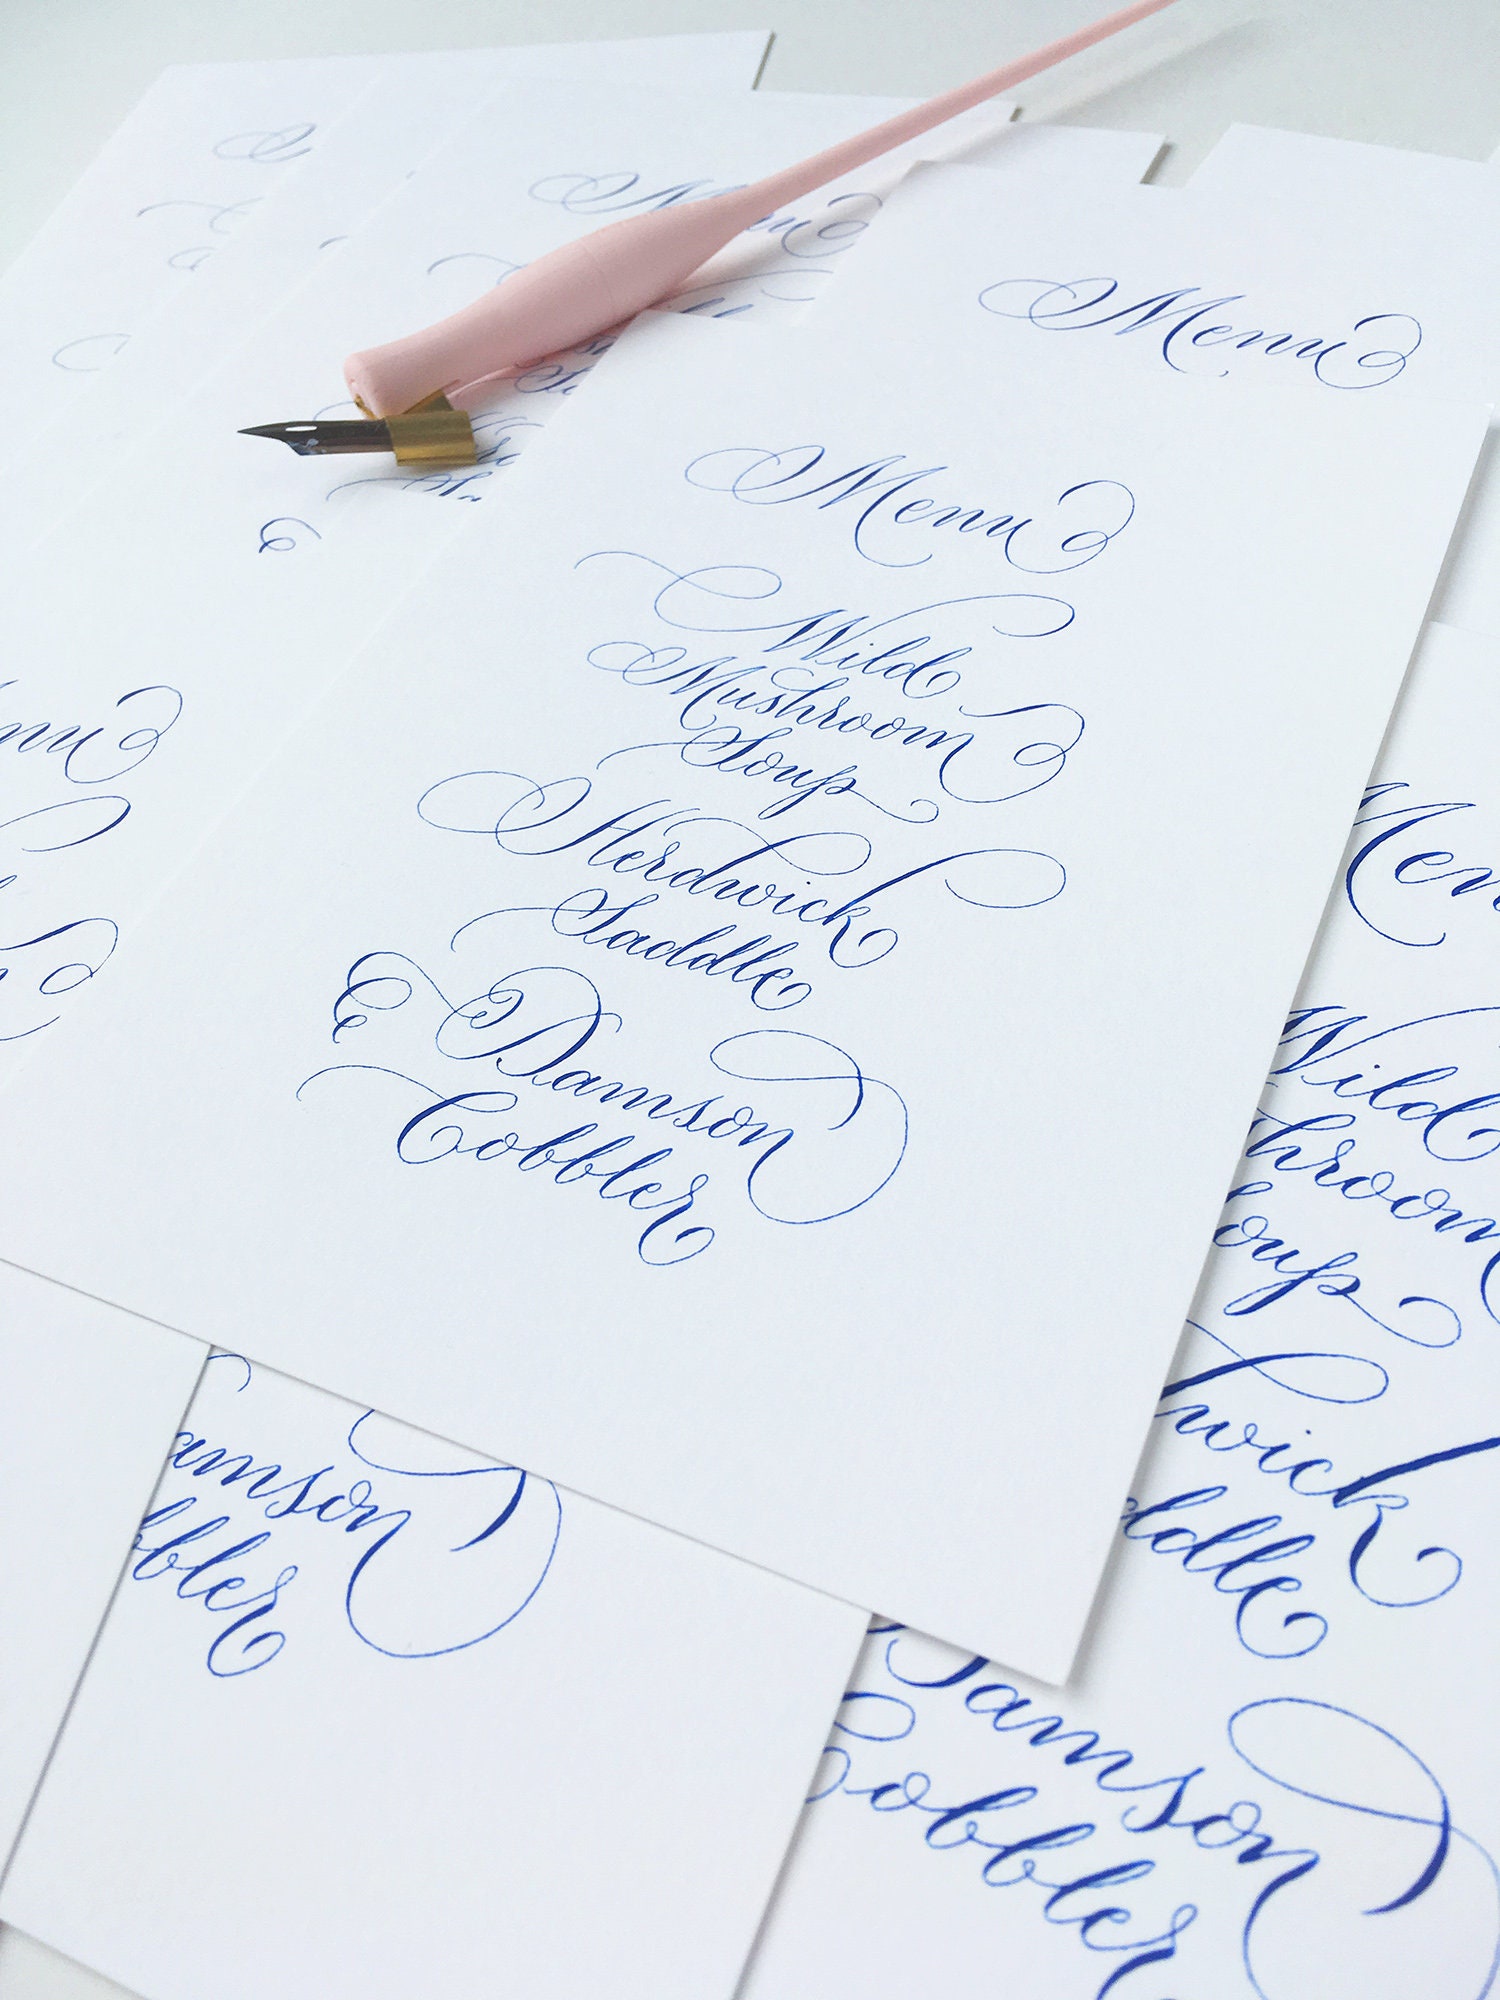 Menu
Menu
Menu
Wild
Mushroom
Soup
Herdwick
Saddle
& Damson
Cobbler
enu
Men
Wild
hroom
oup
wick
ddle
Damson
Cobbler
amson
bbler